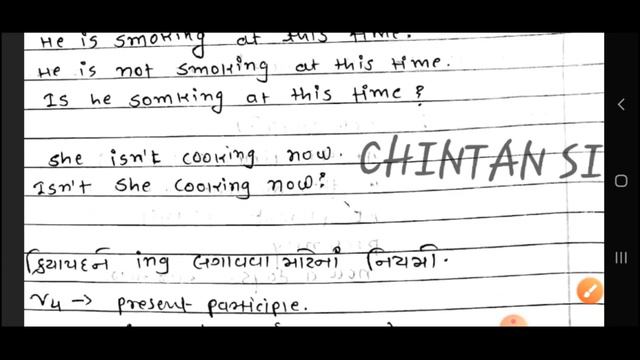 He is smoking at this time.
He is not smoking at this time.
Is he somking at this time?
She isn't cooking now.
CHINTAN SI
Isn't she cooking now?
ક્રિયાપદને ing લગાવવા માટેનાં નિયમો.
V4 -> present participle.